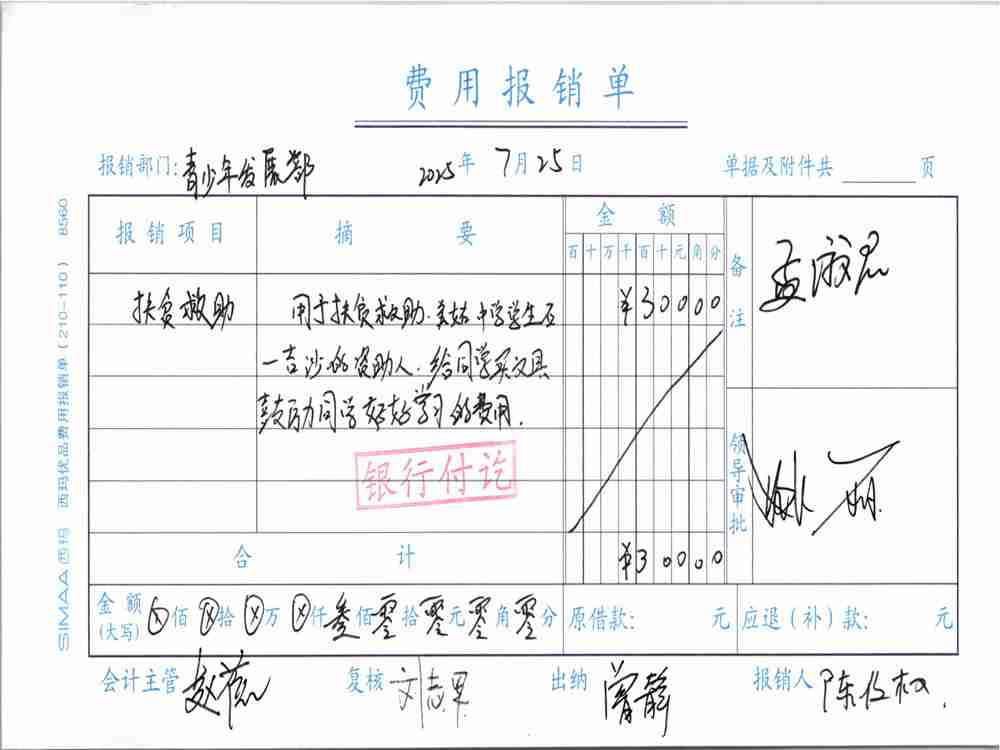 费用报销单
报销部门:青少年发展部 2025年7月25日 单据及附件共 页
报销项目 摘要 金额 备注
百十万千百十元角分
孟淑君
扶贫救助 用于扶贫救助. 中学学生石 ¥30000
一吉沙的资助人.给同学买文具
鼓励同学好好学习的费用.
银行付讫
领导审批
合计 ¥30000
金额(大写) ⊗佰⊗拾⊗万⊗仟叁佰零拾零元零角零分 原借款: 元 应退(补)款: 元
会计主管 复核 刘志军 出纳 曾静 报销人
SIMAA西玛 西玛优品费用报销单(210-110) 8560